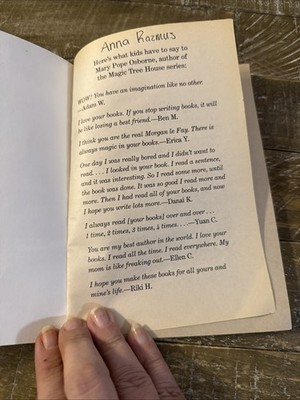 Anna Razmus
Here's what kids have to say to
Mary Pope Osborne, author of
the Magic Tree House series:
WOW! You have an imagination like no other.
—Adam W.
I love your books. If you stop writing books, it will
be like losing a best friend.—Ben M.
I think you are the real Morgan le Fay. There is
always magic in your books.—Erica Y.
One day I was really bored and I didn't want to
read. . . . I looked in your book. I read a sentence,
and it was interesting. So I read some more, until
the book was done. It was so good I read more and
more. Then I had read all of your books, and now
I hope you write lots more.—Danai K.
I always read [your books] over and over . . .
1 time, 2 times, 3 times, 4 times. . . .—Yuan C.
You are my best author in the world. I love your
books. I read all the time. I read everywhere. My
mom is like freaking out.—Ellen C.
I hope you make these books for all yours and
mine's life.—Riki H.